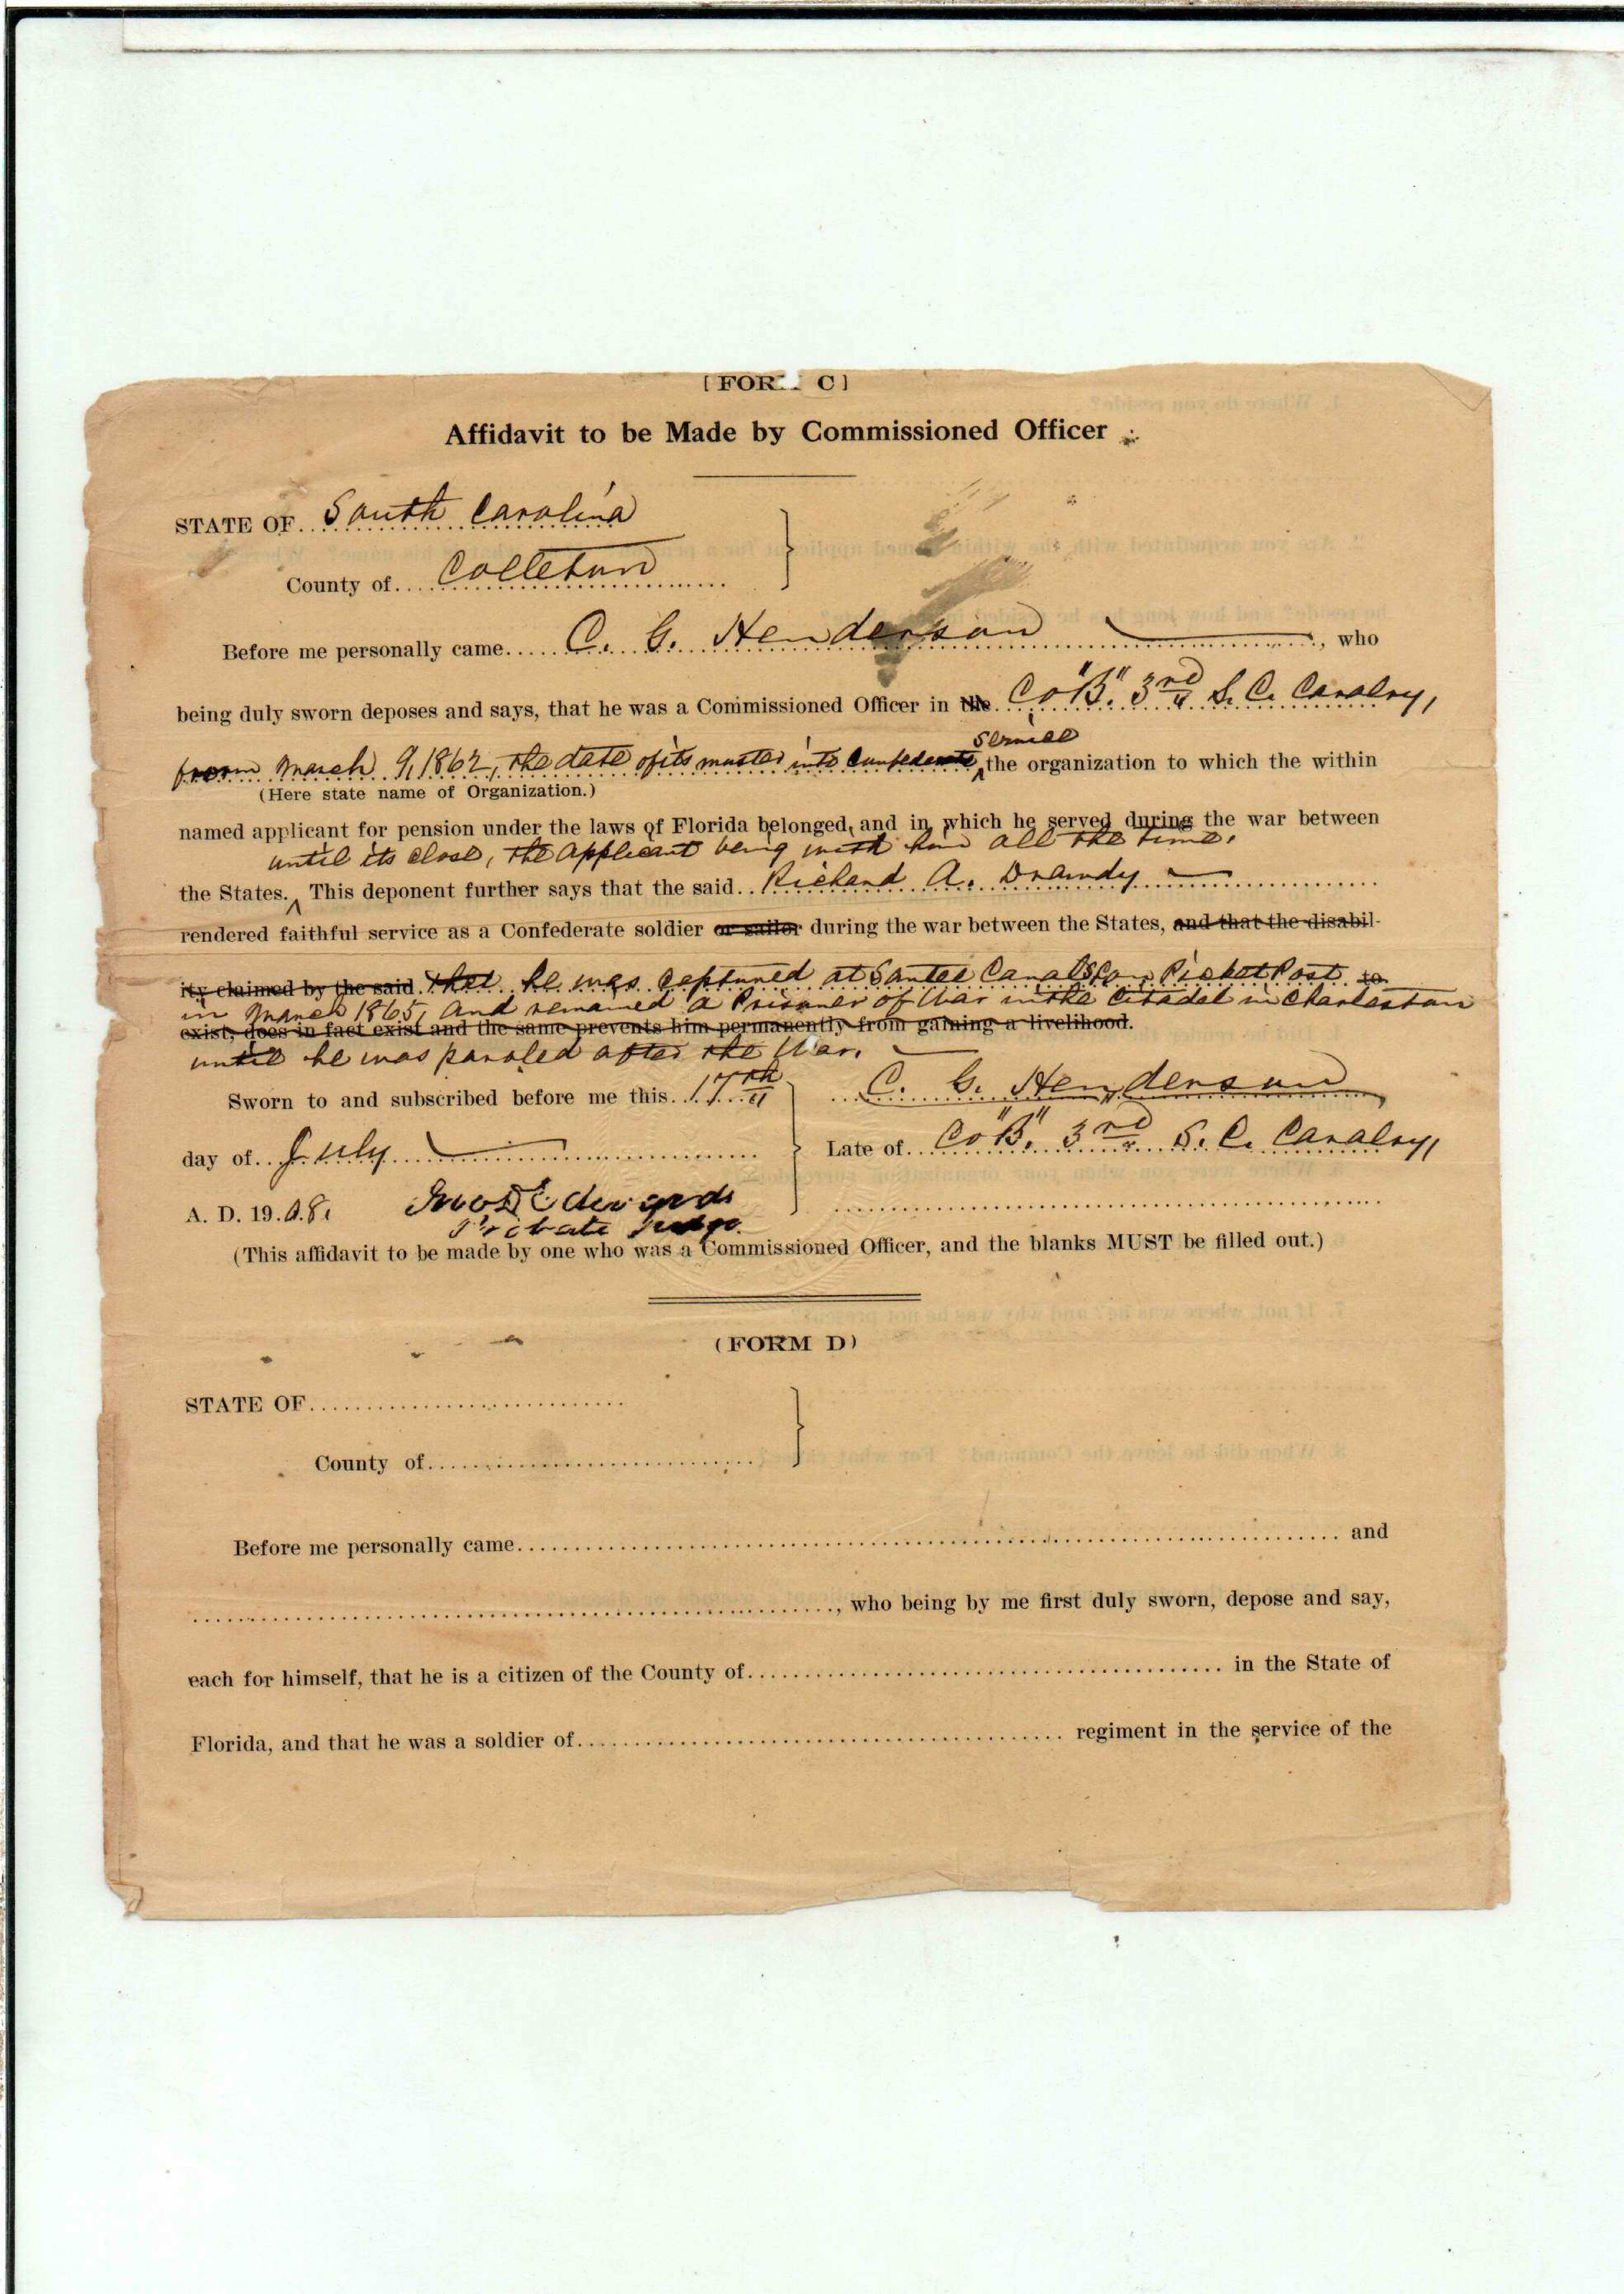 [FOR C]
Affidavit to be Made by Commissioned Officer
STATE OF South Carolina
County of Colleton
Before me personally came C. G. Henderson, who
being duly sworn deposes and says, that he was a Commissioned Officer in the Co "B". 3rd S. C. Cavalry,
service
from March 9, 1862, the date of its muster into Confederate the organization to which the within
(Here state name of Organization.)
named applicant for pension under the laws of Florida belonged, and in which he served during the war between
until its close, the applicant being with him all the time.
the States. This deponent further says that the said Richard A. Drawdy
rendered faithful service as a Confederate soldier or sailor during the war between the States, and that the disabil-
ity claimed by the said that he was captured at Santee Canal on Picket Post to
in March 1865, and remained a Prisoner of War in the Citadel in Charleston
exist, does in fact exist and the same prevents him permanently from gaining a livelihood.
until he was paroled after the War.
Sworn to and subscribed before me this 17th C. G. Henderson
day of July Late of Co "B". 3rd S. C. Cavalry,
A. D. 1908.
Probate Judge
(This affidavit to be made by one who was a Commissioned Officer, and the blanks MUST be filled out.)
(FORM D)
STATE OF
County of
Before me personally came and
, who being by me first duly sworn, depose and say,
each for himself, that he is a citizen of the County of in the State of
Florida, and that he was a soldier of regiment in the service of the